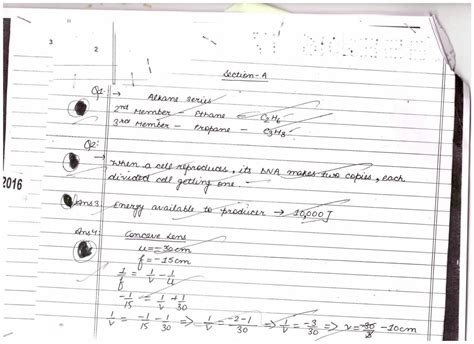 3
2
Section-A
Q1: → Alkane series
2nd Member - Ethane - C2H6
3rd Member - Propane - C3H8
Q2:
→ When a cell reproduces, its DNA makes two copies, each
divided cell getting one.
2016
Ans3. Energy available to producer → 10,000 J
Ans4: Concave Lens
u = -30cm
f = -15cm
1/f = 1/v - 1/u
-1/15 = 1/v + 1/30
1/v = -1/15 - 1/30 ⇒ 1/v = -2-1/30 ⇒ 1/v = -3/30 ⇒ v = -30/3 -10cm